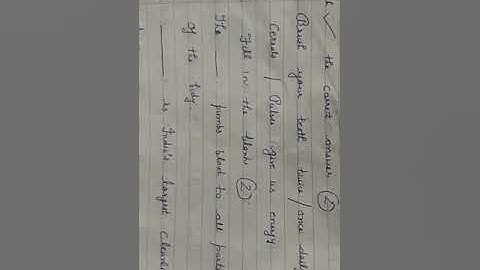 ✓ the correct answer (2)
Brush your teeth twice / once daily
Cereals / Pulses give us energy
Fill in the blanks (2)
The ____ pumps blood to all parts
of the body.
____ is India's largest